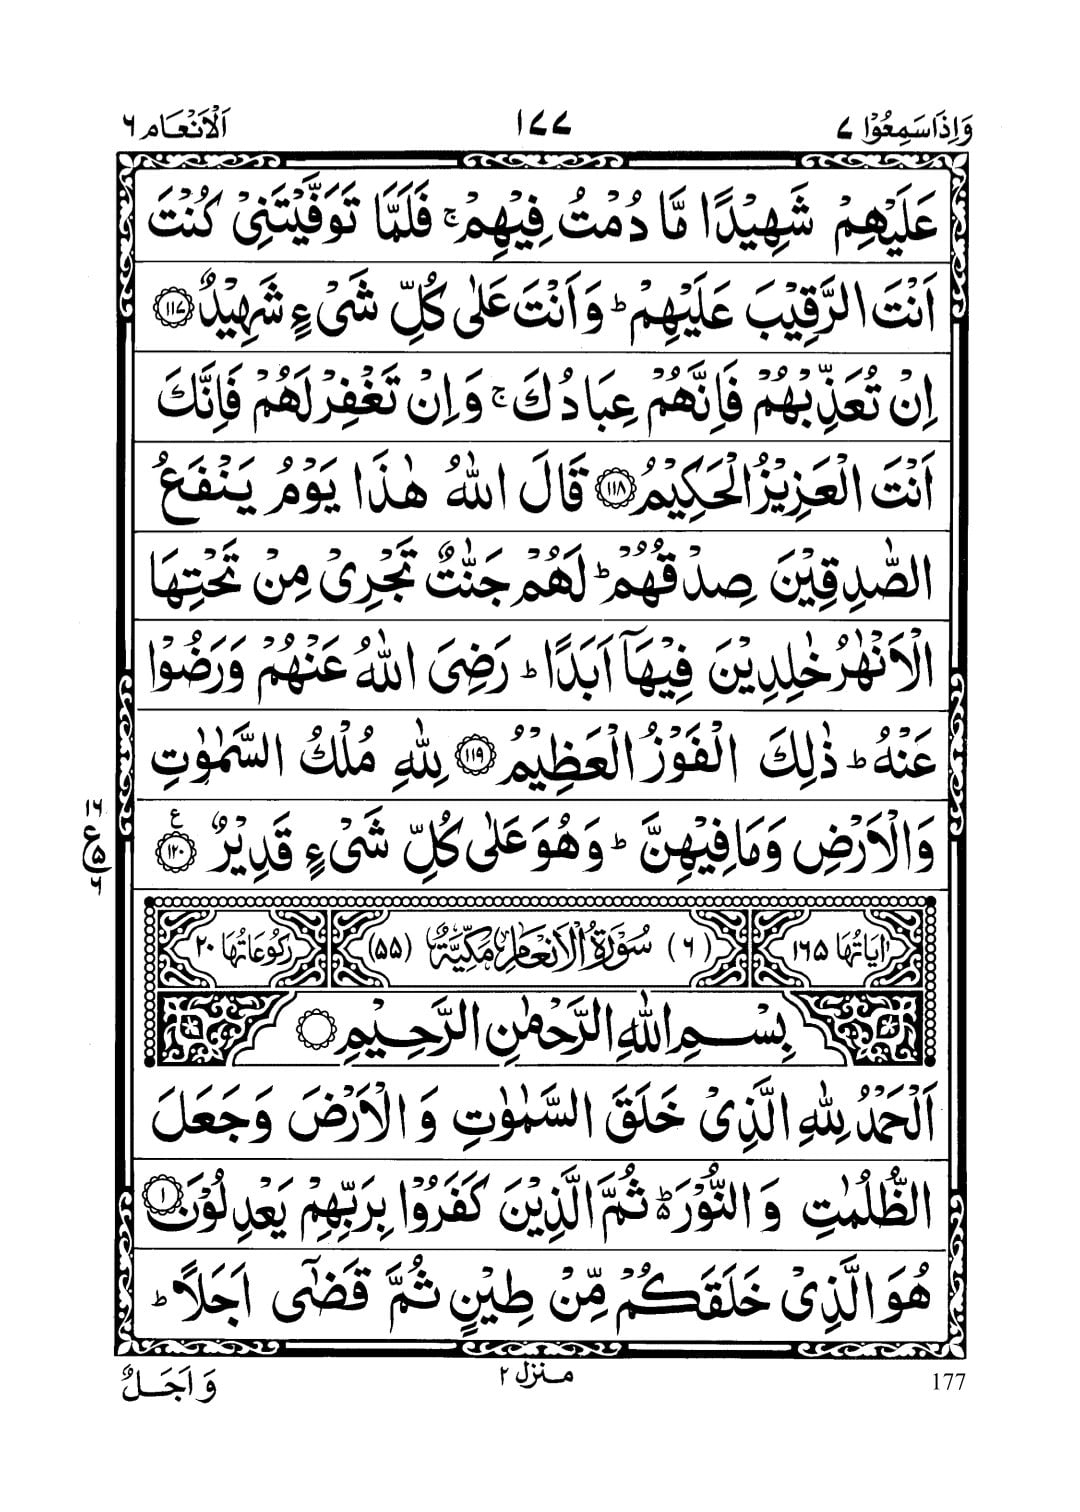 وَاِذَاسَمِعُوۡا ۷ ۱۷۷ اَلۡاَنۡعَام ۶
عَلَيۡهِمۡ شَهِيۡدًا مَّا دُمۡتُ فِيۡهِمۡ ۚ فَلَمَّا تَوَفَّيۡتَنِىۡ كُنۡتَ
اَنۡتَ الرَّقِيۡبَ عَلَيۡهِمۡ ؕ وَاَنۡتَ عَلٰى كُلِّ شَىۡءٍ شَهِيۡدٌ ۱۱۷
اِنۡ تُعَذِّبۡهُمۡ فَاِنَّهُمۡ عِبَادُكَ ۚ وَاِنۡ تَغۡفِرۡ لَهُمۡ فَاِنَّكَ
اَنۡتَ الۡعَزِيۡزُ الۡحَكِيۡمُ ۱۱۸ قَالَ اللّٰهُ هٰذَا يَوۡمُ يَنۡفَعُ
الصّٰدِقِيۡنَ صِدۡقُهُمۡ ؕ لَهُمۡ جَنّٰتٌ تَجۡرِىۡ مِنۡ تَحۡتِهَا
الۡاَنۡهٰرُ خٰلِدِيۡنَ فِيۡهَاۤ اَبَدًا ؕ رَضِىَ اللّٰهُ عَنۡهُمۡ وَرَضُوۡا
عَنۡهُ ؕ ذٰلِكَ الۡفَوۡزُ الۡعَظِيۡمُ ۱۱۹ لِلّٰهِ مُلۡكُ السَّمٰوٰتِ
وَالۡاَرۡضِ وَمَا فِيۡهِنَّ ؕ وَهُوَ عَلٰى كُلِّ شَىۡءٍ قَدِيۡرٌ ۱۲۰ ع
۱۶ ع ۵ ۶
اٰيَاتُهَا ۱۶۵ (۶) سُوۡرَةُ الۡاَنۡعَامِ مَكِّيَّةٌ (۵۵) رُكُوۡعَاتُهَا ۲۰
بِسۡمِ اللّٰهِ الرَّحۡمٰنِ الرَّحِيۡمِ
اَلۡحَمۡدُ لِلّٰهِ الَّذِىۡ خَلَقَ السَّمٰوٰتِ وَالۡاَرۡضَ وَجَعَلَ
الظُّلُمٰتِ وَالنُّوۡرَ ؕ ثُمَّ الَّذِيۡنَ كَفَرُوۡا بِرَبِّهِمۡ يَعۡدِلُوۡنَ ۱
هُوَ الَّذِىۡ خَلَقَكُمۡ مِّنۡ طِيۡنٍ ثُمَّ قَضٰٓى اَجَلًا ؕ
177 منزل ۲ وَاَجَلٌ